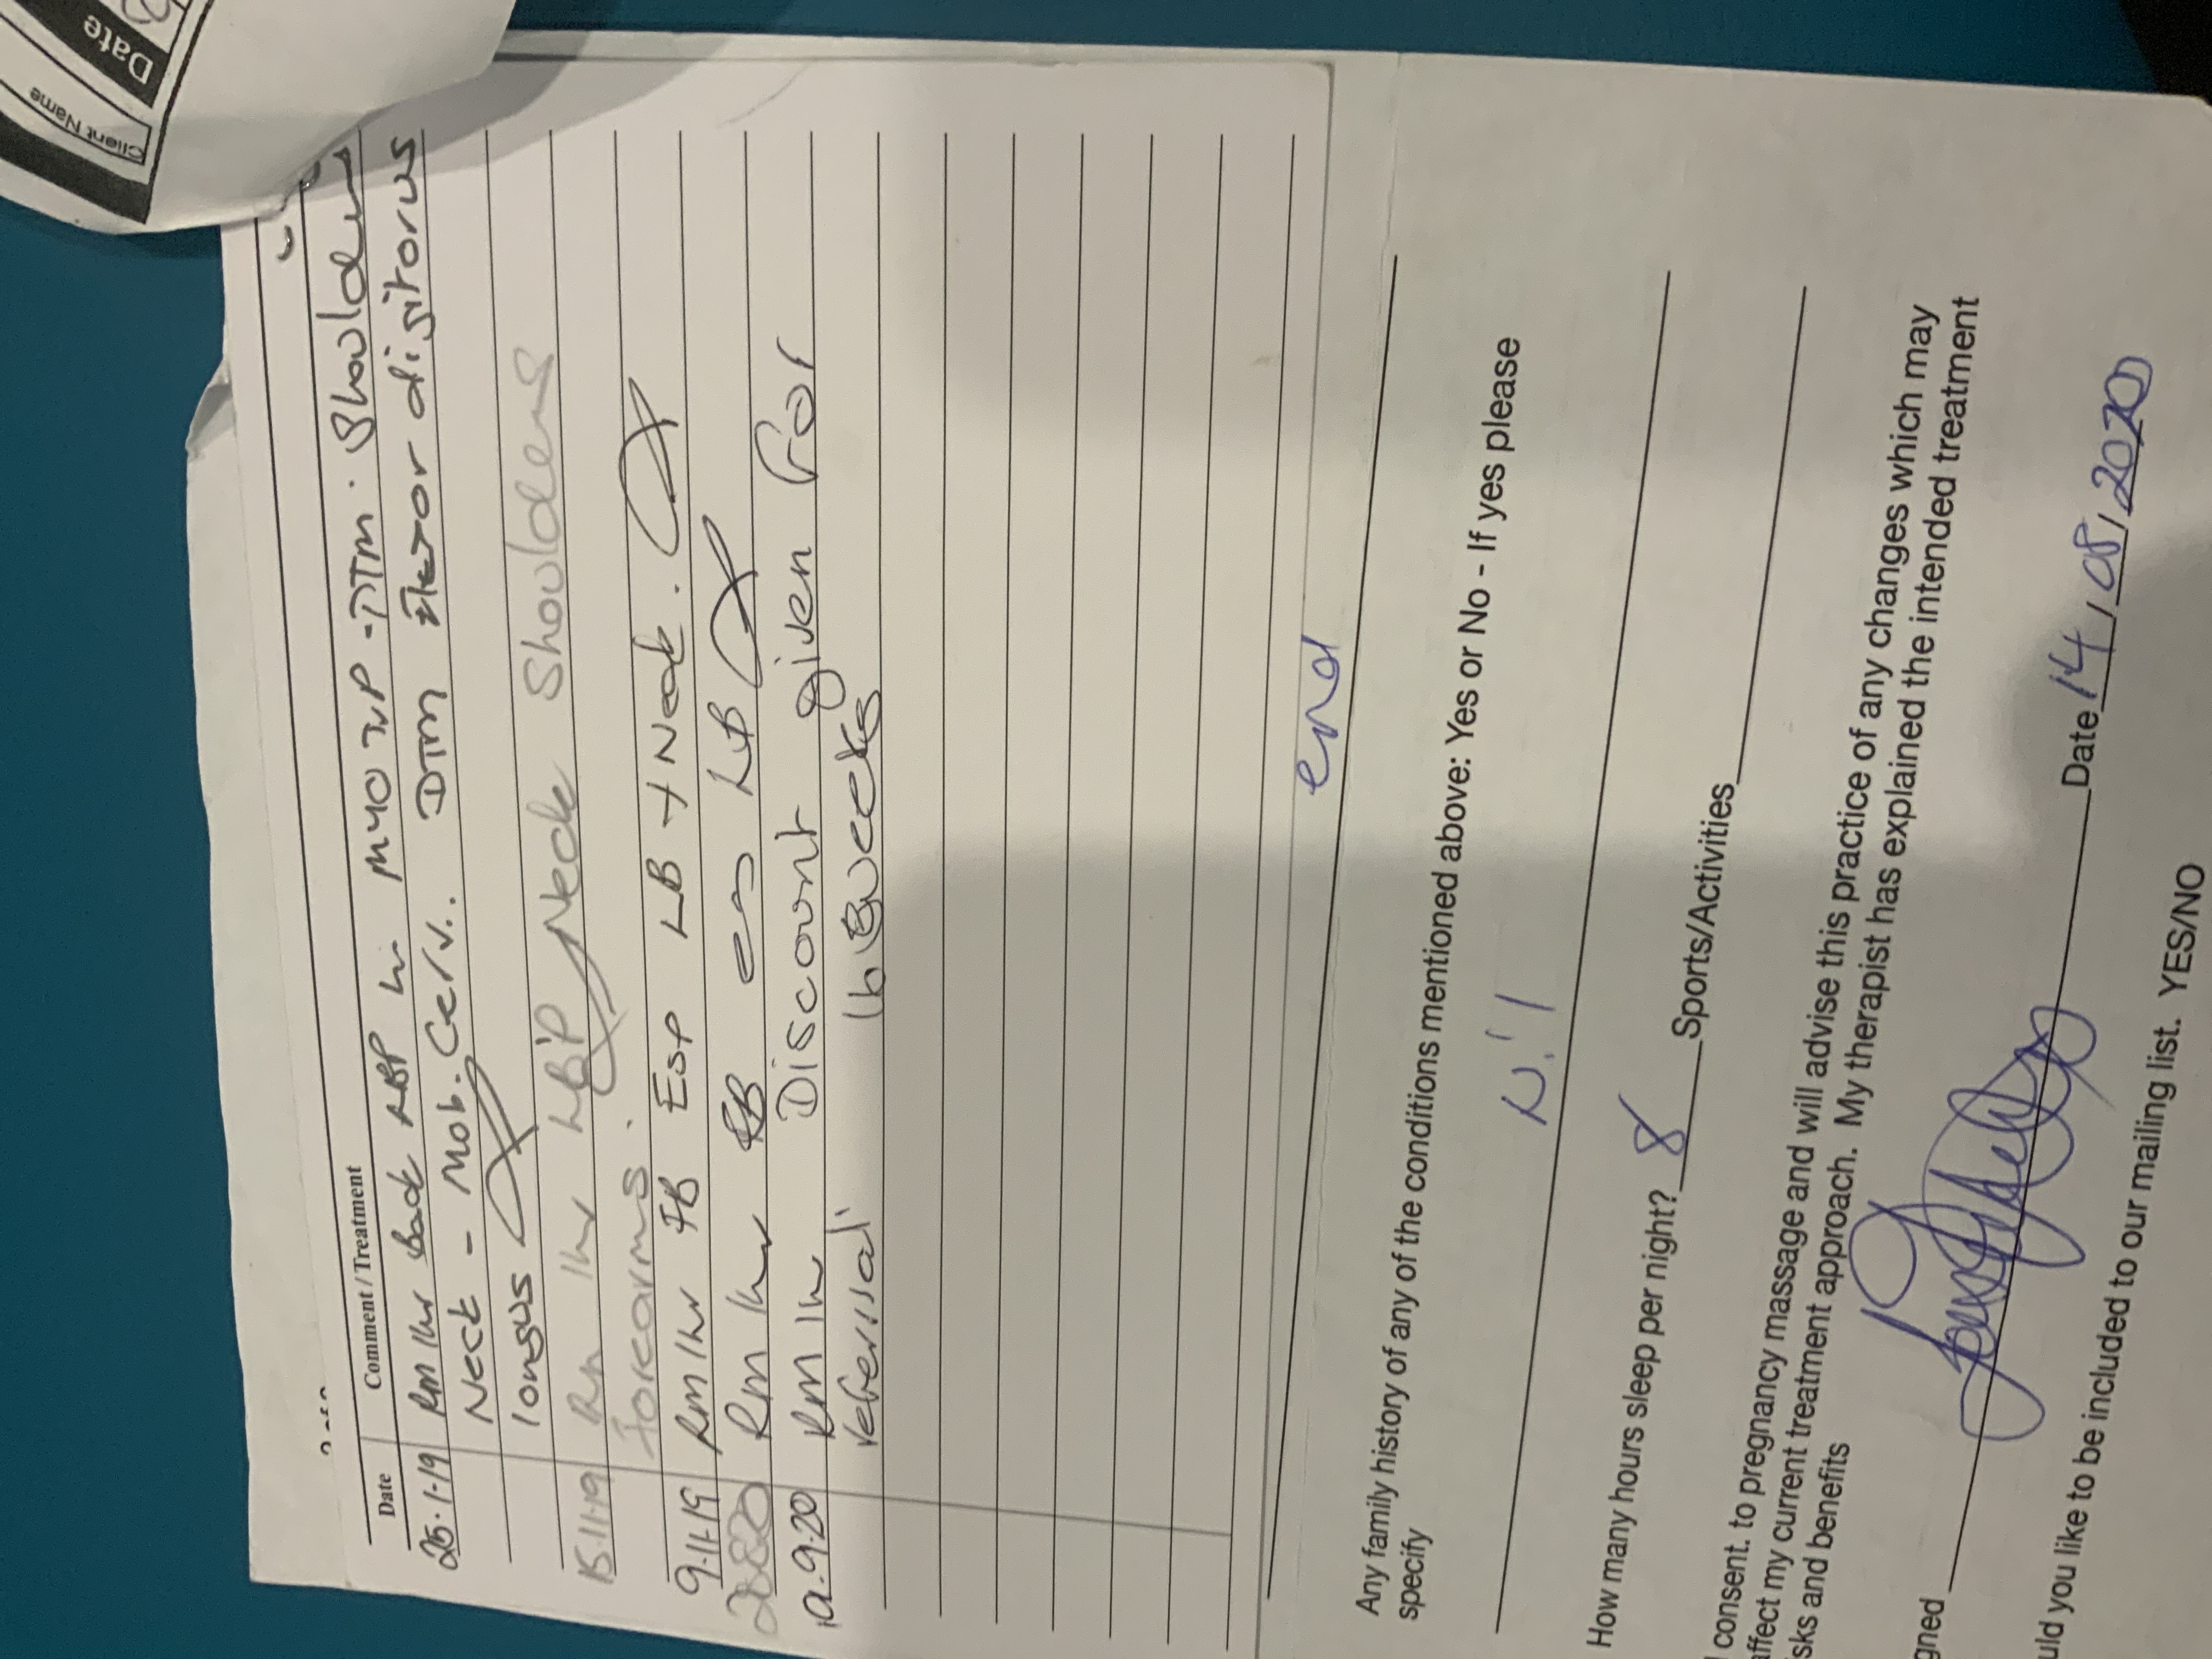 Client Name
Date
Date Comment / Treatment
25.1.19 Rm 1hr back LBP MYO - DTM. Shoulder
Neck - Mob. Cerv.. DTM flexor digitorus
longus
15.11.19 Rm 1hr LBP Neck Shoulders
forearms.
9.11.19 Rm 1hr FB Esp LB + Neck.
Rm 1hr FB LB
9.20 Rm 1hr Discount given for
referral 16 weeks
end
Any family history of any of the conditions mentioned above: Yes or No - If yes please
specify
Nil
How many hours sleep per night? 8 Sports/Activities
consent. to pregnancy massage and will advise this practice of any changes which may
affect my current treatment approach. My therapist has explained the intended treatment
sks and benefits
gned Date 14/08/2020
uld you like to be included to our mailing list. YES/NO